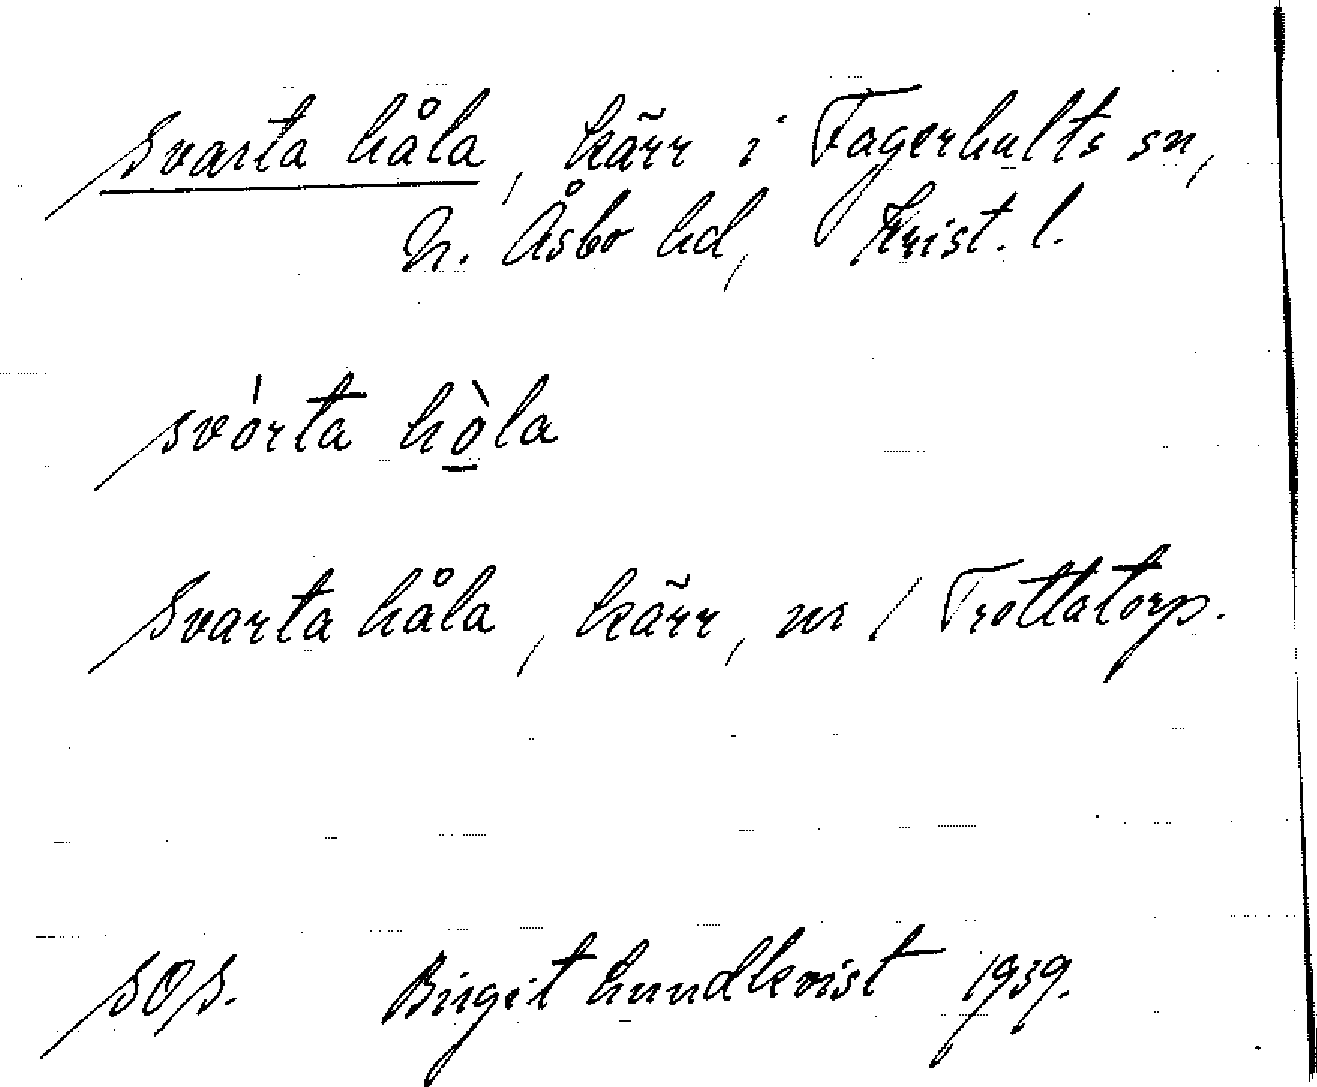 Svarta håla, kärr i Fagerhults sn,
N. Åsbo hd, Krist. l.
svórta hò̱la
Svarta håla, kärr, nr 1 Trottatorp.
SOS. Birgit Lundkvist 1939.